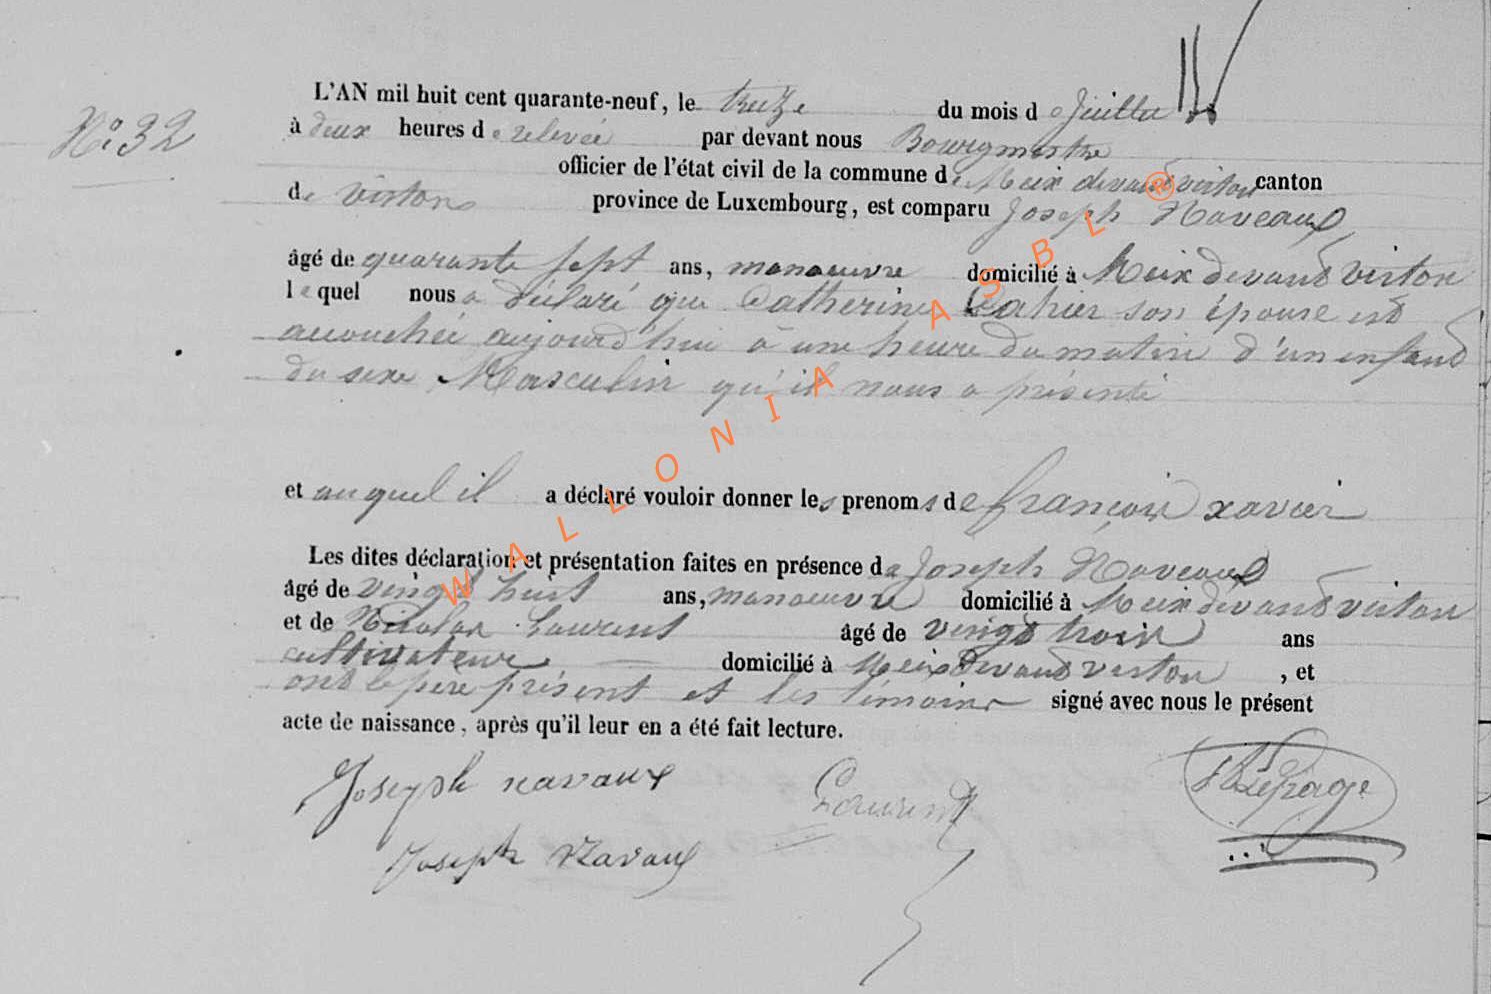 N° 32
L'AN mil huit cent quarante-neuf, le treize du mois de Juillet
à deux heures de relevée par devant nous Bourgmestre
officier de l'état civil de la commune de Meix devant virton canton
de virton province de Luxembourg, est comparu Joseph Naveaux
âgé de quarante sept ans, manoeuvre domicilié à Meix devant virton
lequel nous a déclaré que Catherine Cahier son épouse est
accouchée aujourd'hui à une heure du matin d'un enfant
du sexe Masculin qu'il nous a présenté
et auquel il a déclaré vouloir donner les prenoms de françois xavier
Les dites déclaration et présentation faites en présence de Joseph Naveaux
âgé de vingt huit ans, manoeuvre domicilié à Meix devant virton
et de Nicolas Laurent âgé de vingt trois ans
cultivateur domicilié à Meix devant virton, et
ont le père présent et les témoins signé avec nous le présent
acte de naissance, après qu'il leur en a été fait lecture.
Joseph navaux Laurent Lepage
Joseph Navaux
WALLONIA ASBL ®